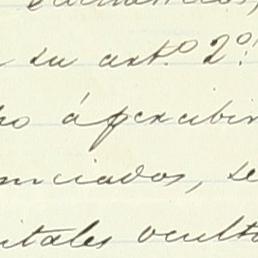 su art.º 2º
á percibir
nciados, se
itales oculto